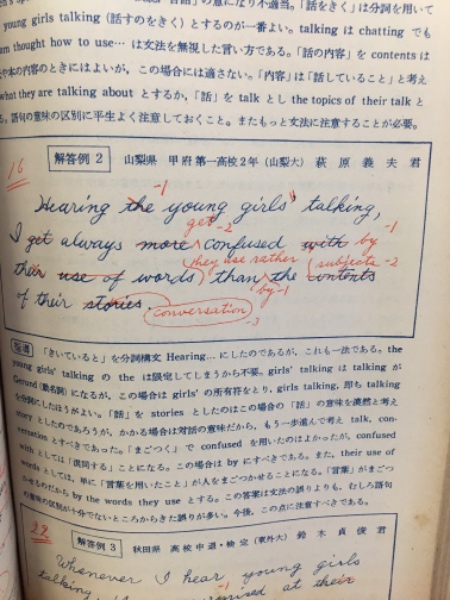 young girls talking (話すのをきく) とするのが一番よい。talking は chatting でも
am thought how to use… は文法を無視した言い方である。「話の内容」を contents は
や本の内容のときにはよいが，この場合には適さない。「内容」は「話していること」と考え
what they are talking about とするか，「話」を talk とし the topics of their talk と
る。語句の意味の区別に平生よく注意しておくこと。またもっと文法に注意することが必要。
16
解答例 2 山梨県 甲府第一高校2年 (山梨大) 萩原義夫 君
-1
Hearing the young girls' talking,
get -2 -1
I get always more confused with by
they use rather subjects -2
their use of words than the contents
by -1
of their stories.
conversation
-3
指導 「きいていると」を分詞構文 Hearing… にしたのであるが，これも一法である。the
young girls' talking の the は限定してしまうから不要。girls' talking は talking が
Gerund (動名詞) になるが，この場合は girls' の所有符をとり，girls talking，即ち talking
を分詞にしたほうがよい。「話」を stories としたのはこの場合の「話」の意味を漠然と考え
story としたのであろうが，かかる場合は対話の意味だから，もう一歩進んで考え talk, con-
versation とすべきであった。「まごつく」で confused を用いたのはよかったが，confused
with としては「混同する」ことになる。この場合は by にすべきである。また，their use of
words としては，単に「言葉を用いたこと」が人をまごつかせることになる。「言葉」がまごつ
かせるのだから by the words they use とする。この答案は文法の誤りよりも，むしろ語句
の意味の区別が十分でないところからきた誤りが多い。今後，この点に注意すべきである。
22
解答例 3 秋田県 高校中退・検定 (東外大) 鈴木貞俊 君
Whenever I hear young girls
-1
talking, at their